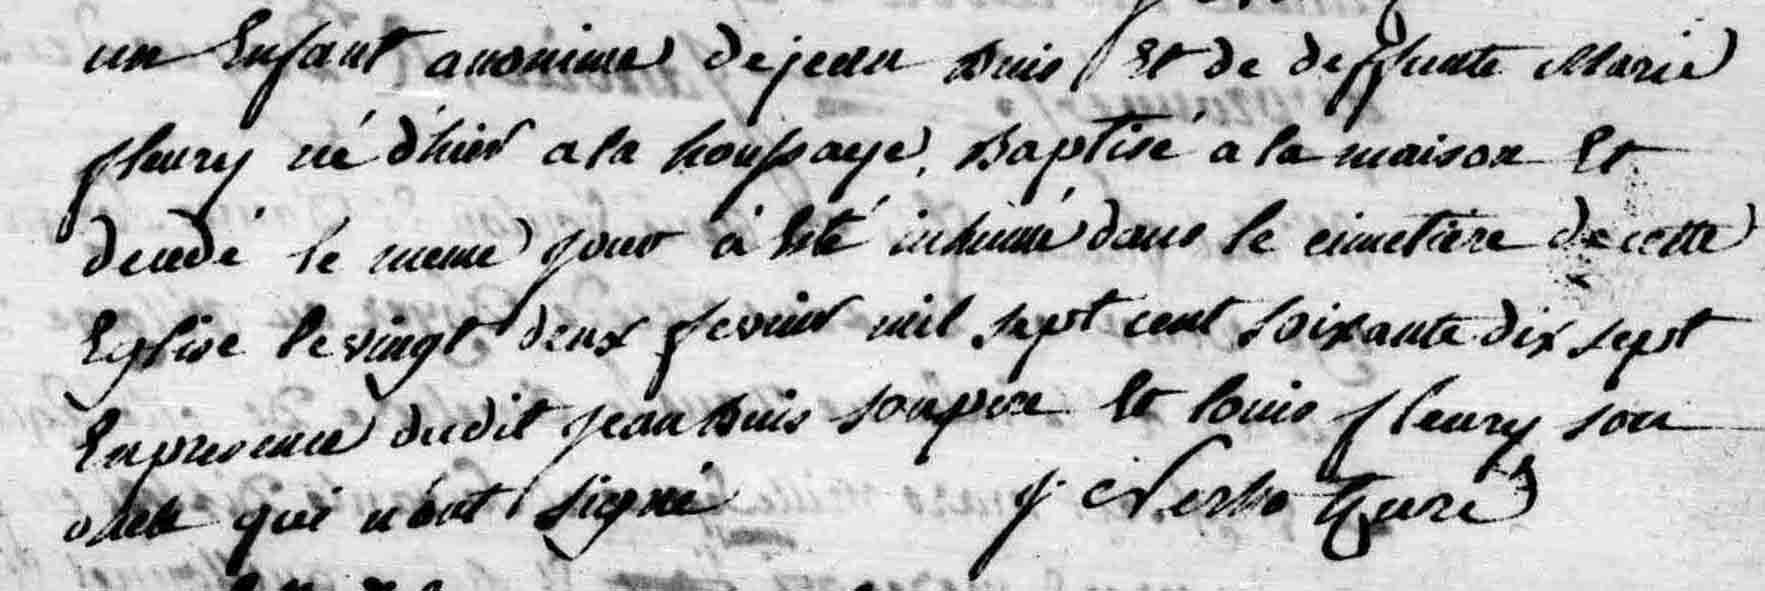 un Enfant anonime de jean Buis Et de deffunte Marie
fleury né d'hier a la houssaye, Baptisé a la maison Et
decedé le meme jour á Eté inhumé dans le cimetiere de cette
Eglise le vingt deux fevrier mil sept cent soixante dix sept
En presence dudit jean Buis son pere Et louis fleury son
oncle qui n'ont signé j